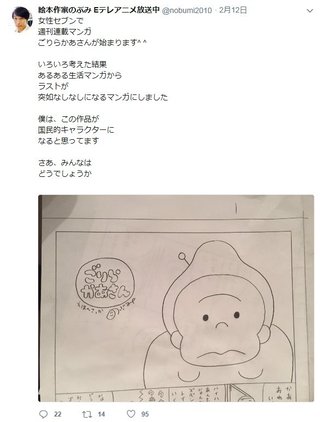 絵本作家のぶみ Eテレアニメ放送中 @nobumi2010・2月12日
女性セブンで
週刊連載マンガ
ごりらかあさんが始まります^ ^
いろいろ考えた結果
あるある生活マンガから
ラストが
突如なしなしになるマンガにしました
僕は、この作品が
国民的キャラクターに
なると思ってます
さあ、みんなは
どうでしょうか
ごりら
かあさん
22 14 95